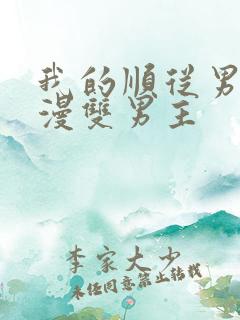 我的順從男
漫雙男主
李家大少
未任同意禁止轉載